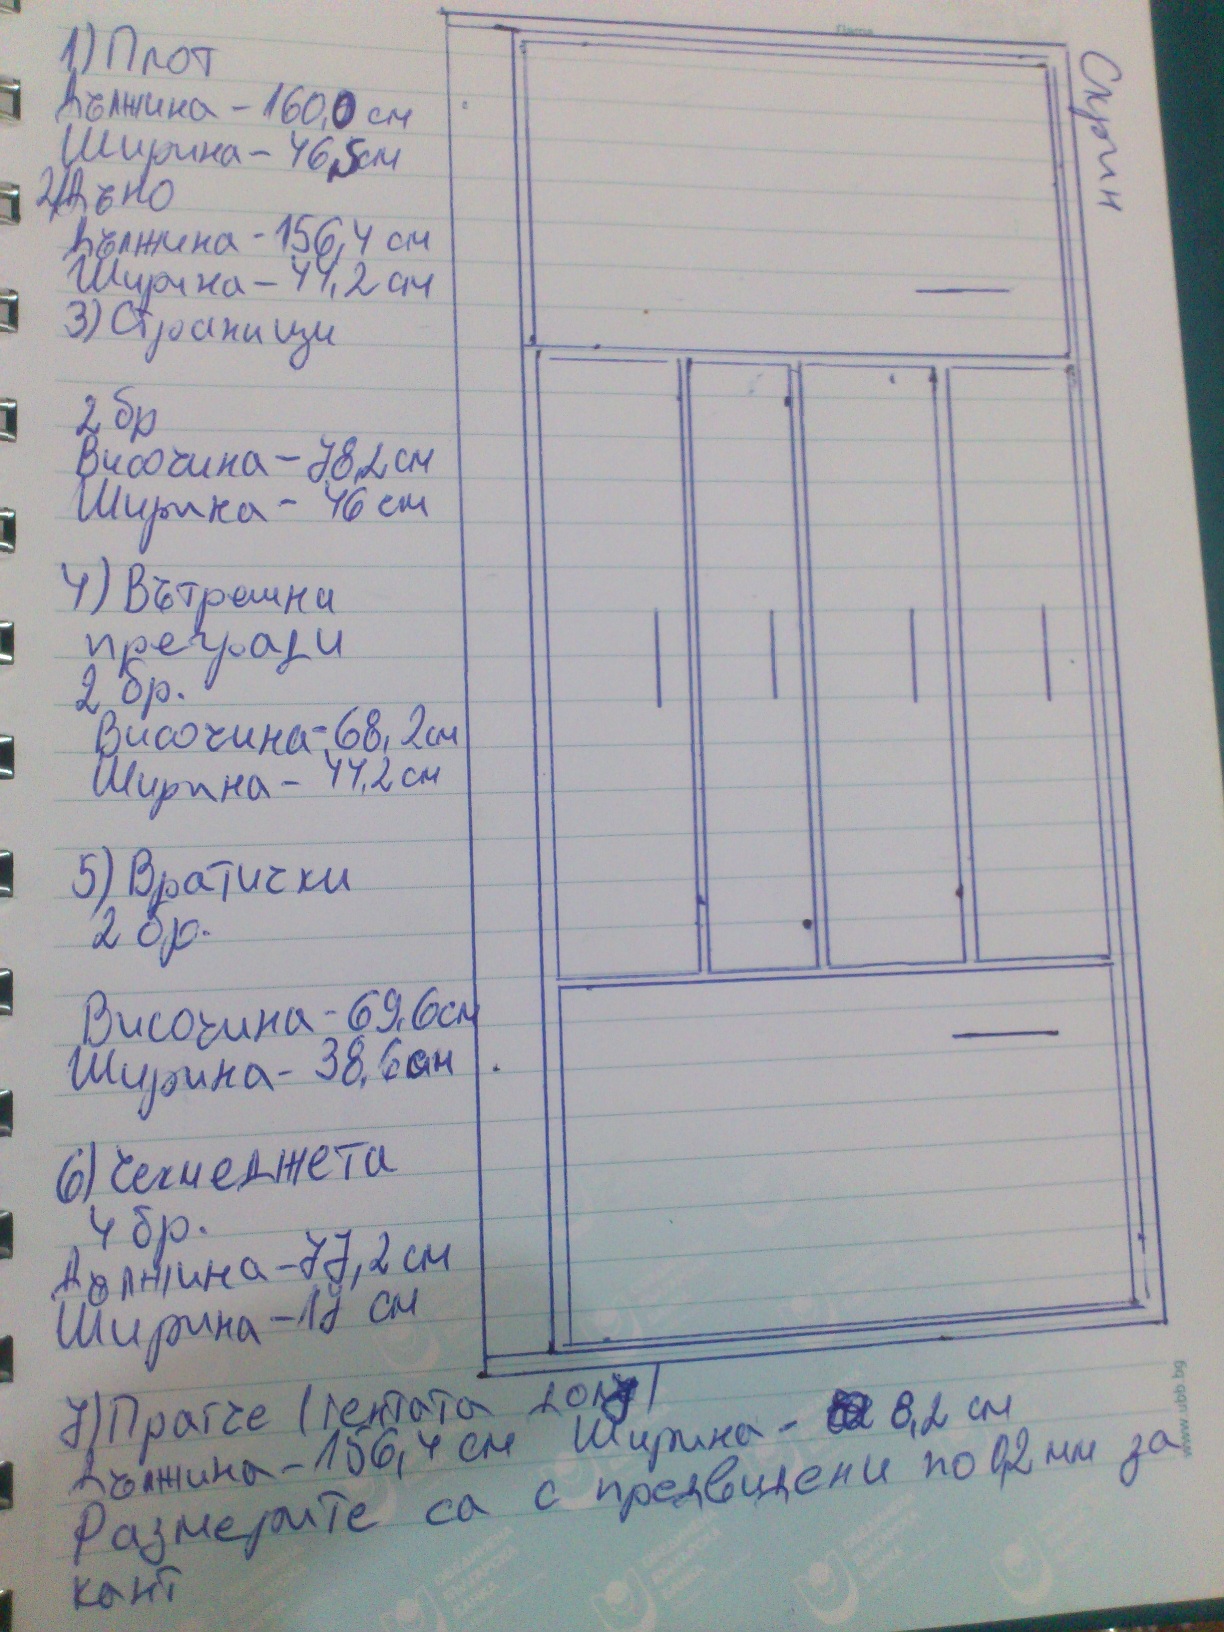 1) Плот
Дължина - 160,0 см
Ширина - 46,5 см
2) Дъно
Дължина - 156,4 см
Ширина - 44,2 см
3) Страници
2 бр
Височина - 78,2 см
Ширина - 46 см
4) Вътрешна
прегради
2 бр.
Височина - 68,2 см
Ширина - 44,2 см
5) Вратички
2 бр.
Височина - 69,6 см
Ширина - 38,6 см
6) Чекмеджета
4 бр.
Дължина - 77,2 см
Ширина - 17 см
7) Прагче (лентата долу)
Дължина - 156,4 см Ширина - 8,2 см
Размерите са с предвидени по 0,2 мм за
кант
Скрин
www.ubb.bg
ОБЕДИНЕНА
БЪЛГАРСКА
БАНКА